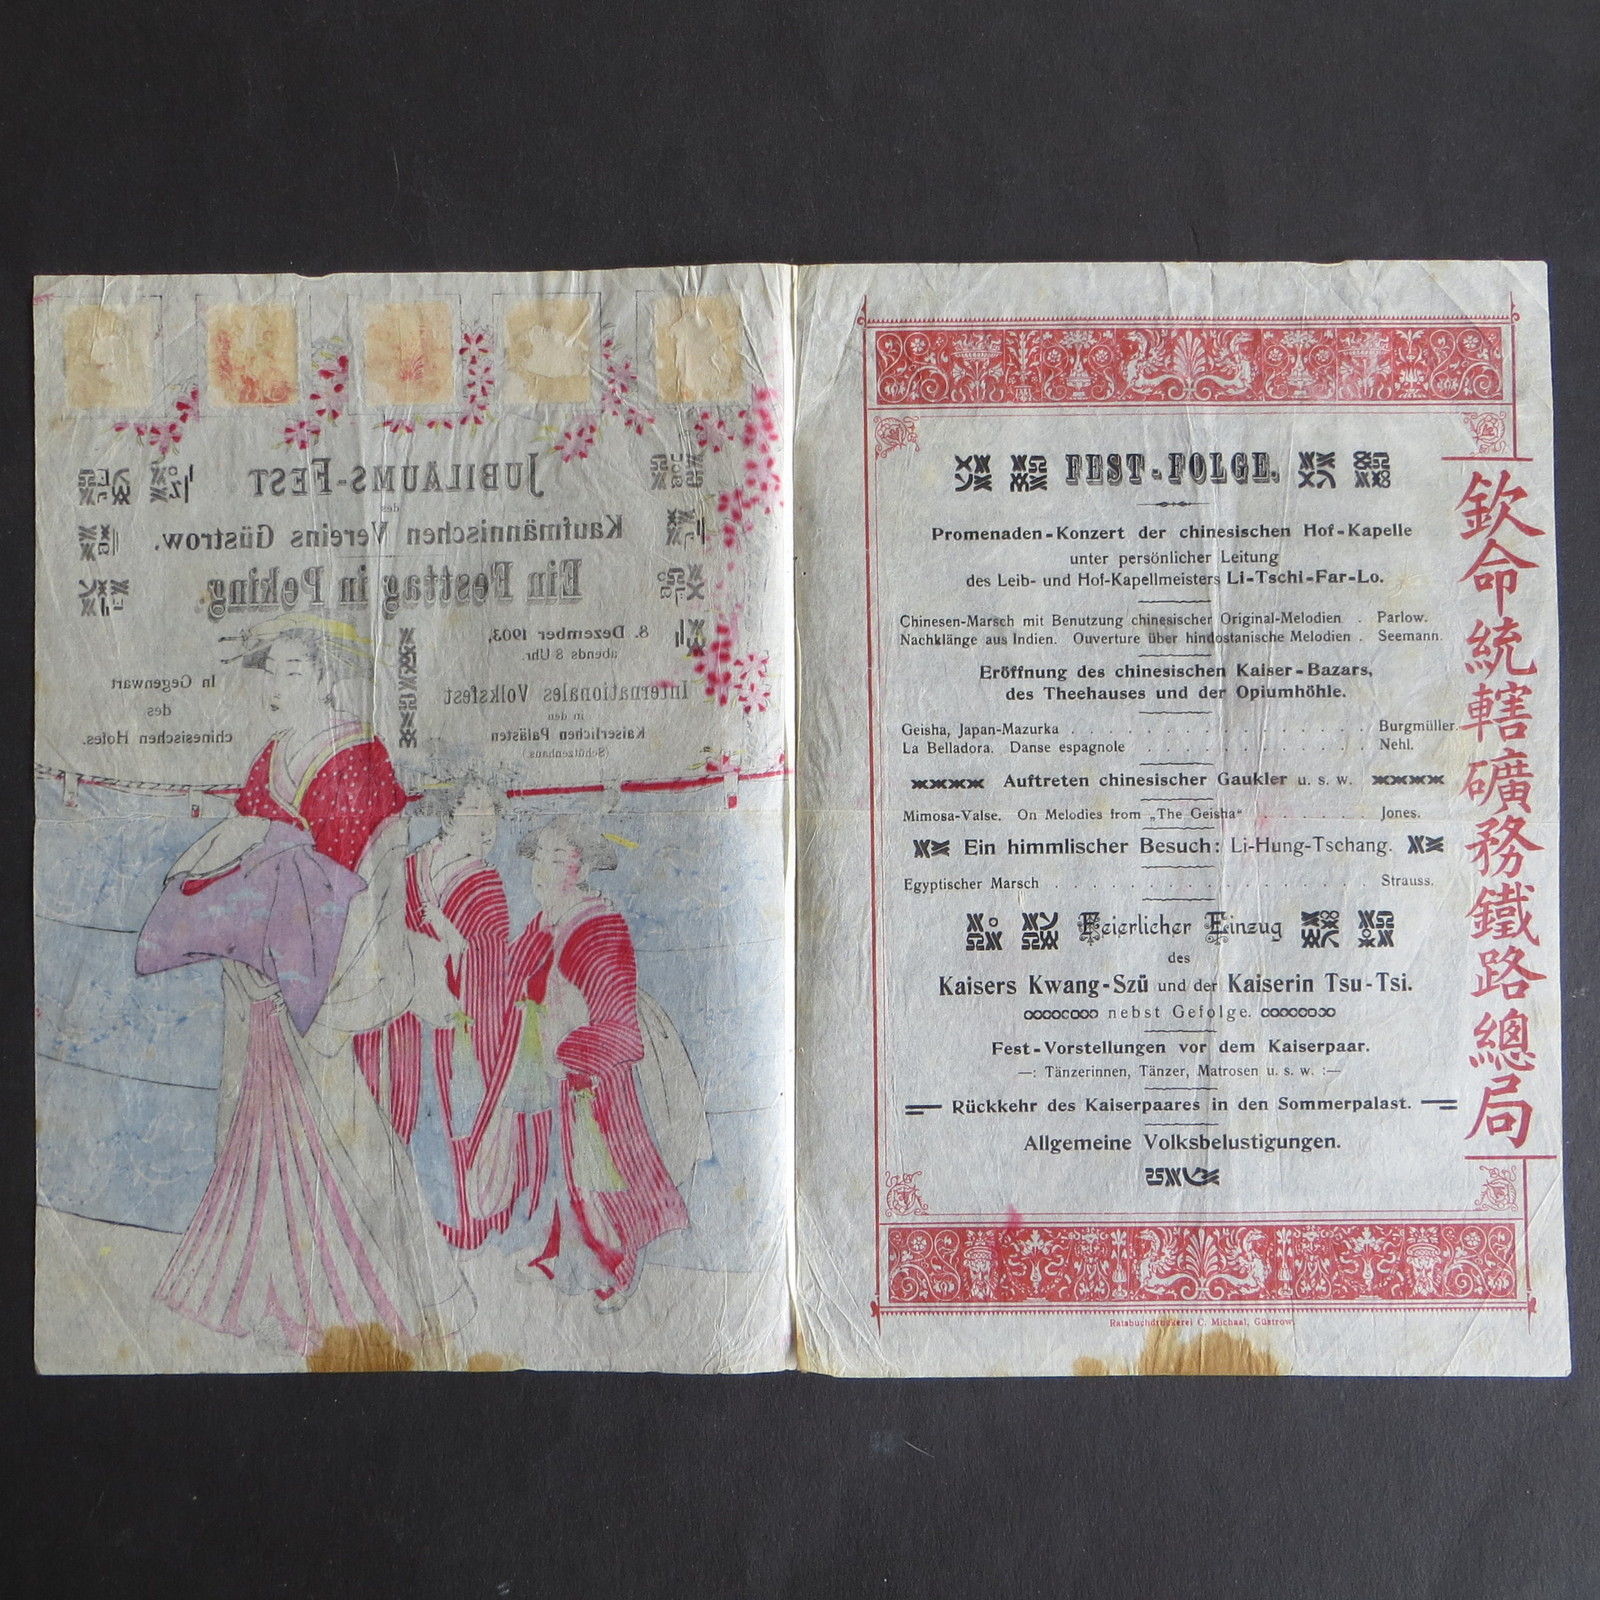 JUBILÄUMS-FEST
des
Kaufmännischen Vereins Güstrow.
Ein Festtag in Peking.
8. Dezember 1903,
abends 8 Uhr.
Internationales Volksfest
in den
Kaiserlichen Palästen
(Schützenhaus.)
In Gegenwart
des
chinesischen Hofes.
FEST-FOLGE.
Promenaden-Konzert der chinesischen Hof-Kapelle
unter persönlicher Leitung
des Leib- und Hof-Kapellmeisters Li-Tschi-Far-Lo.
Chinesen-Marsch mit Benutzung chinesischer Original-Melodien . Parlow.
Nachklänge aus Indien. Ouverture über hindostanische Melodien . Seemann.
Eröffnung des chinesischen Kaiser-Bazars,
des Theehauses und der Opiumhöhle.
Geisha, Japan-Mazurka . . . . . . . . . . . . . Burgmüller.
La Belladora. Danse espagnole . . . . . . . . . . Nehl.
Auftreten chinesischer Gaukler u. s. w.
Mimosa-Valse. On Melodies from „The Geisha“ . . . . . . Jones.
Ein himmlischer Besuch: Li-Hung-Tschang.
Egyptischer Marsch . . . . . . . . . . . . . . Strauss.
Feierlicher Einzug
des
Kaisers Kwang-Szü und der Kaiserin Tsu-Tsi.
nebst Gefolge.
Fest-Vorstellungen vor dem Kaiserpaar.
—: Tänzerinnen, Tänzer, Matrosen u. s. w. :—
Rückkehr des Kaiserpaares in den Sommerpalast.
Allgemeine Volksbelustigungen.
Ratsbuchdruckerei C. Michaal, Güstrow.
欽命統轄礦務鐵路總局